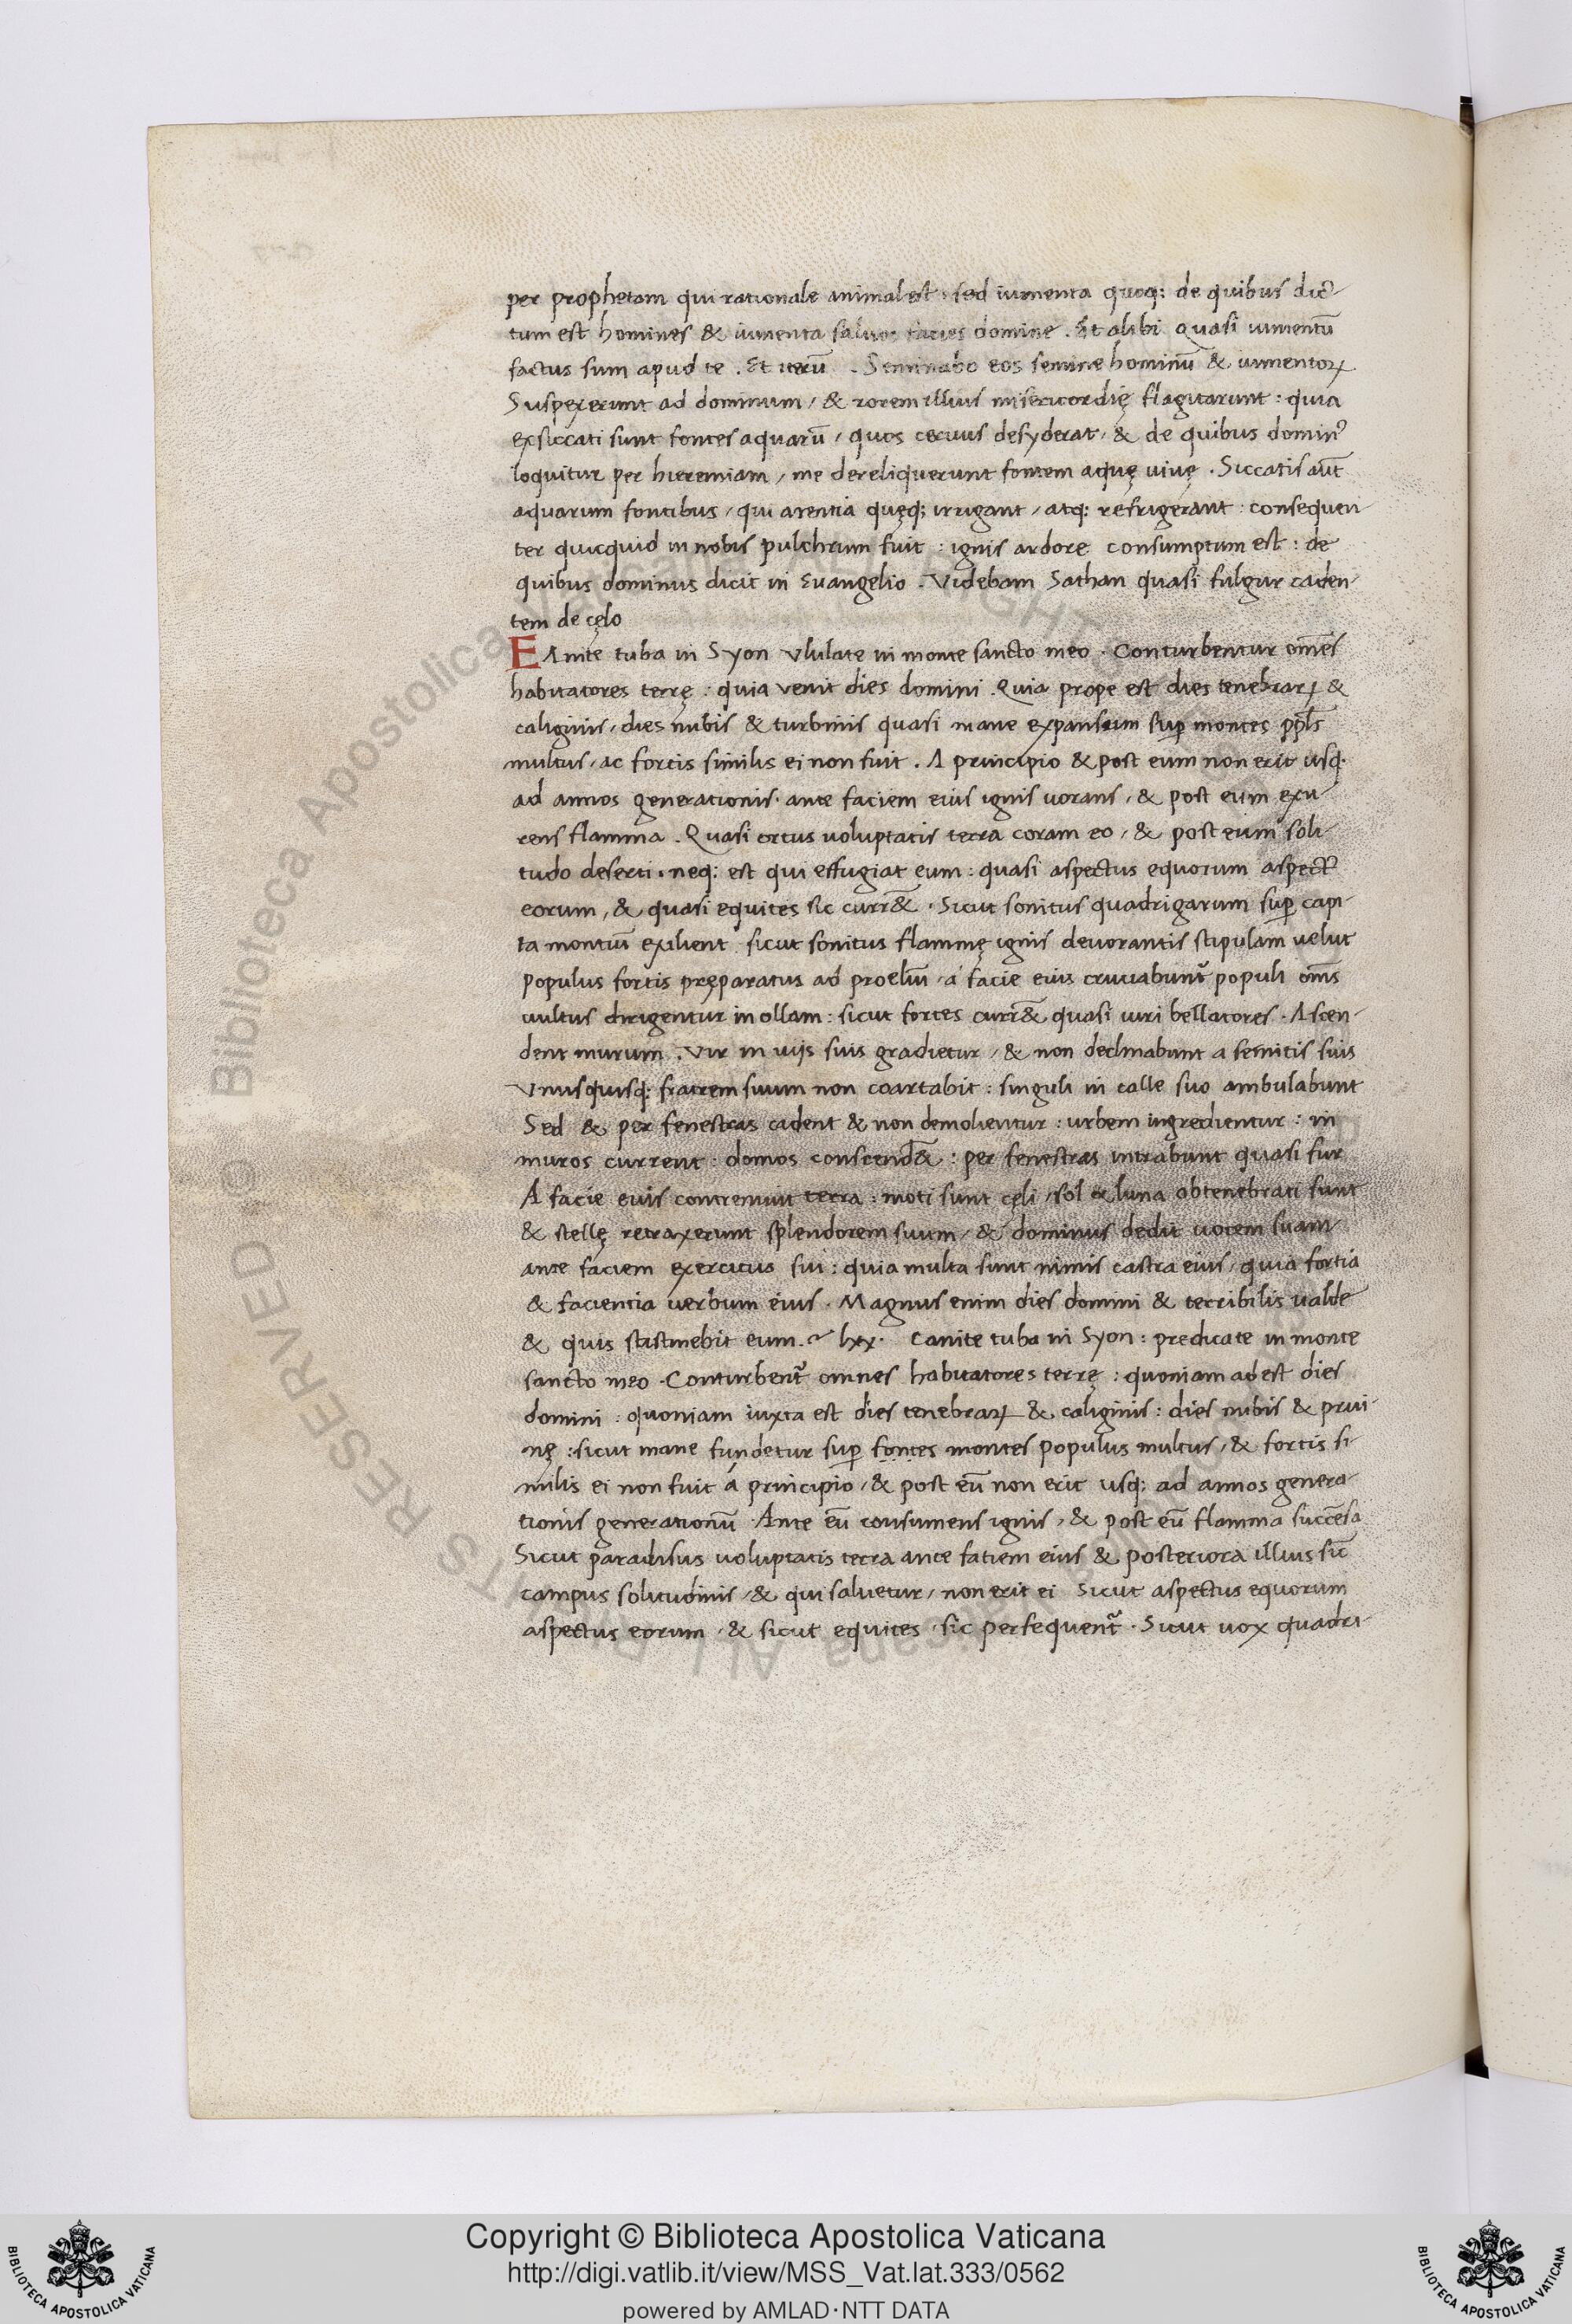 per prophetam qui rationale animal est : sed iumenta quoq; de quibus dic̃-
tum est homines & iumenta saluos facies domine . Et alibi Quasi iumentũ
factus sum apud te . Et iterũ . Seminabo eos semine hominũ & iumentoꝝ
Suspexerunt ad dominum / & rorem illius misericordię flagitarunt : quia
exsiccati sunt fontes aquarũ / quos ceruus desyderat / & de quibus domin᾽
loquitur per hieremiam / me dereliquerunt fontem aquę uiuę . Siccatis aũt
aquarum fontibus / qui arentia quęq; irrigant / atq; refrigerant : consequen
ter quicquid in nobis pulchrum fuit : ignis ardore consumptum est : de
quibus dominus dicit in Euangelio . Videbam Sathan quasi fulgur caden-
tem de cęlo
E Anite tuba in Syon Vlulate in monte sancto meo . Conturbentur om̃es
habitatores terrę : quia venit dies domini . Quia prope est dies tenebraꝝ &
caliginis / dies nubis & turbinis quasi mane expansum suꝑ montes ppl̃s
multus / ac fortis similis ei non fuit . A principio & post eum non erit usq;
ad annos generationis . ante faciem eius ignis uorans / & post eum exu-
rens flamma . Quasi ortus voluptatis terra coram eo / & post eum soli-
tudo deserti . neq; est qui effugiat eum : quasi aspectus equorum aspect᾽
eorum / & quasi equites sic curr&̃ . Sicut sonitus quadrigarum suꝑ capi-
ta montiũ exilient sicut sonitus flammę ignis deuorantis stipulam velut
populus fortis pręparatus ad proeliũ / a facie eius cruciabunt᷑ populi om̃s
uultus dirigentur in ollam : sicut fortes curr&̃ quasi uiri bellatores . Ascen-
dent murum . Vir in uijs suis gradietur / & non declinabunt a semitis suis
Vnusquisq; fratrem suum non coartabit : singuli in calle suo ambulabunt
Sed & per fenestras cadent & non demolientur : urbem ingredientur : in
muros current : domos conscend&̃ : per fenestras intrabunt quasi fur
A facie euis contremuit terra : moti sunt cęli / sol & luna obtenebrati sunt
& stellę retraxerunt splendorem suum / & dominus dedit uocem suam
ante faciem exercitus sui : quia multa sunt nimis castra eius / quia fortia
& facientia uerbum eius . Magnus enim dies domini & terribilis ualde
& quis sustinebit eum . lxx . Canite tuba in Syon : predicate in monte
sancto meo . Conturbent᷑ omnes habitatores terrę : quoniam adest dies
domini : quoniam iuxta est dies tenebraꝝ & caliginis : dies nubis & prui-
nę : sicut mane fundetur suꝑ fontes montes populus multus / & fortis si
milis ei non fuit á principio / & post eũ non erit usq; ad annos genera-
tionis generationũ . Ante eũ consumens ignis / & post eũ flamma succẽsa
Sicut paradisus uoluptatis terra ante fatiem eius & posteriora illius sic̃
campus solitudinis / & qui saluetur / non erit ei Sicut aspectus equorum
aspectus eorum / & sicut equites sic persequent᷑ . Sicut uox quadri-
Copyright © Biblioteca Apostolica Vaticana
http://digi.vatlib.it/view/MSS_Vat.lat.333/0562
powered by AMLAD·NTT DATA